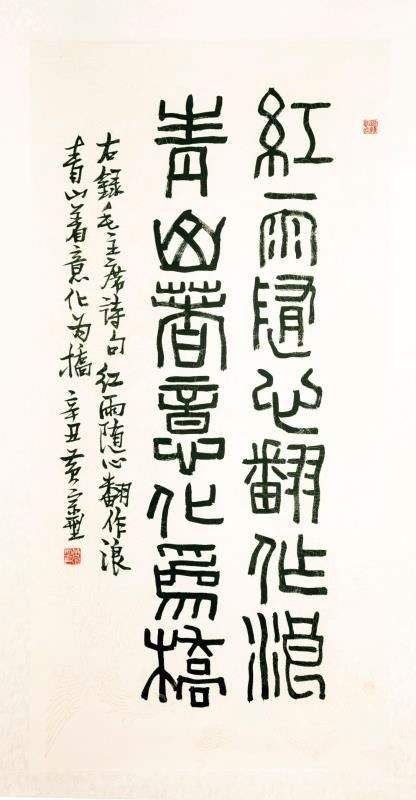 紅雨隨心翻作浪
青山著意化爲橋
右錄毛主席詩句 紅雨随心翻作浪
青山着意化为橋 辛丑 黄宗